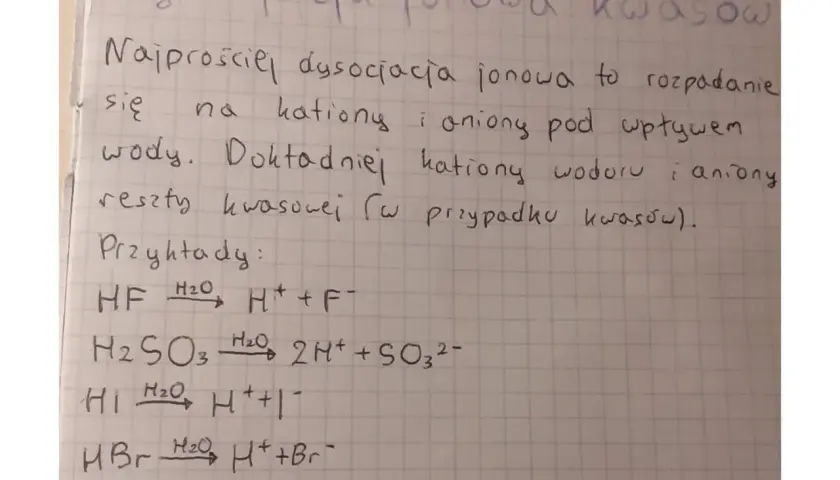 jonowa kwasów
Najprościej dysocjacja jonowa to rozpadanie
się na kationy i aniony pod wpływem
wody. Dokładniej kationy wodoru i aniony
reszty kwasowej (w przypadku kwasów).
Przykłady:
HF H2O→ H⁺ + F⁻
H2SO3 H2O→ 2H⁺ + SO3²⁻
HI H2O→ H⁺+I⁻
HBr H2O→ H⁺+Br⁻